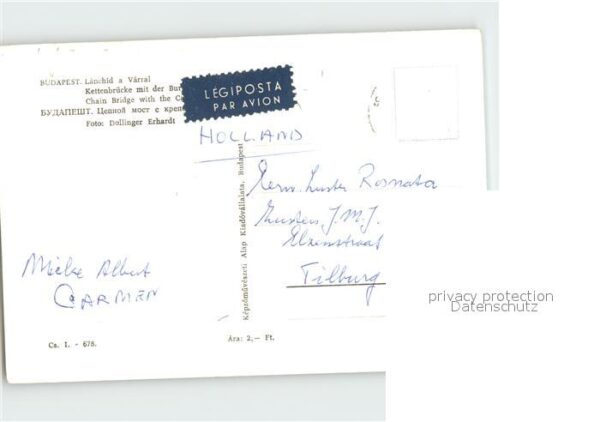 BUDAPEST. Lánchíd a Várral
Kettenbrücke mit der Bur
Chain Bridge with the Ca
БУДАПЕШТ. Цепной мост с креп
Foto: Dollinger Erhardt
LÉGIPOSTA
PAR AVION
HOLLAND
Eerw. Zuster Rosnata
Zusters J.M.J.
Elzenstraat
Tilburg
Mieke Albert
CARMEN
Képzőművészeti Alap Kiadóvállalata, Budapest
Cs. 1. - 675.
Ára: 2,— Ft.
privacy protection
Datenschutz